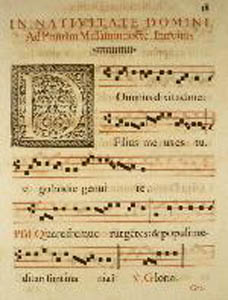 18
IN NATIVITATE DOMINI,
Ad Primam Missam in nocte. Introitus
D
Ominus dixit ad me:
Filius me us es tu,
e go ho di e genui te.
Psl. Quare fremue runt gentes: & populi me-
ditati sunt ina nia? V. Glori